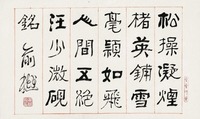 松操凝煙
楮英鋪雪
毫穎如飛
人間五絕
汪少微硯
銘 俞